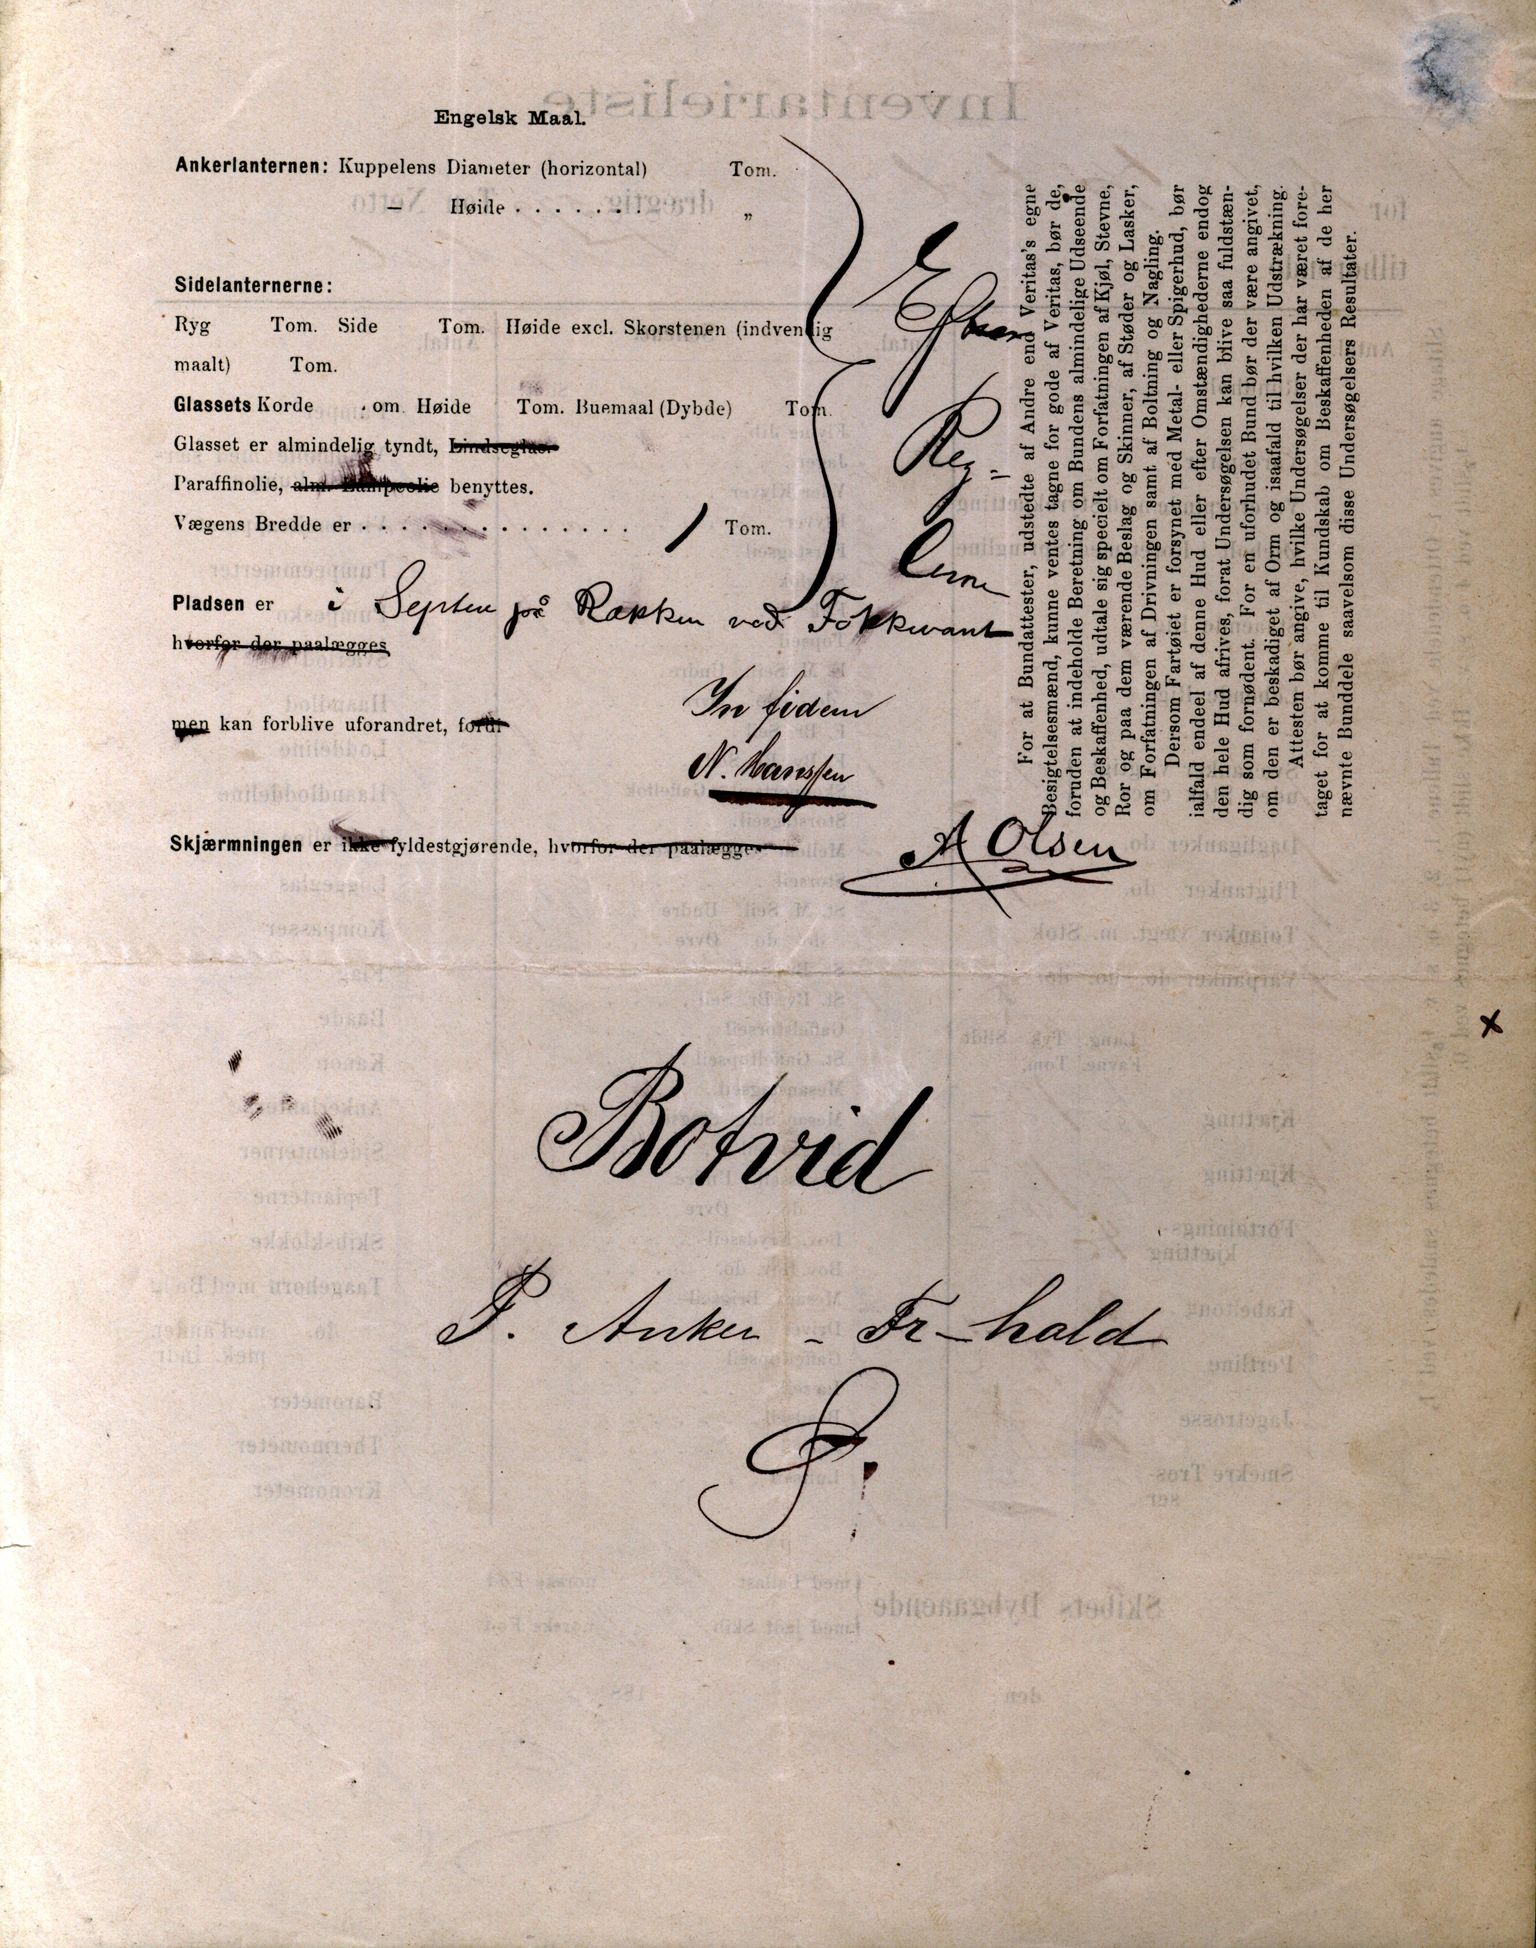 Engelsk Maal.
Ankerlanternen: Kuppelens Diameter (horizontal) Tom.
— Høide . . . . . . . „
Sidelanternerne:
Ryg Tom. Side Tom. Høide excl. Skorstenen (indvendig
maalt) Tom.
Glassets Korde om. Høide Tom. Buemaal (Dybde) Tom.
Glasset er almindelig tyndt, Lindseglas.
Paraffinolie, alm. Lampeolie benyttes.
Vægens Bredde er . . . . . . . . . . . . . . 1 Tom.
Efter
Reg-
lerne
Pladsen er i Septer på Rækken ved Fokkevant
hvorfor der paalægges
men kan forblive uforandret, fordi
In fidem
N. Hanssen
A Olsen
Skjærmningen er ikke fyldestgjørende, hvorfor der paalægges
For at Bundattester, udstedte af Andre end Veritas's egne
Besigtelsesmænd, kunne ventes tagne for gode af Veritas, bør de,
foruden at indeholde Beretning om Bundens almindelige Udseende
og Beskaffenhed, udtale sig specielt om Forfatningen af Kjøl, Stevne,
Ror og paa dem værende Beslag og Skinner, af Støder og Lasker,
om Forfatningen af Drivningen samt af Boltning og Nagling.
Dersom Fartøiet er forsynet med Metal- eller Spigerhud, bør
ialfald endeel af denne Hud eller efter Omstændighederne endog
den hele Hud afrives, forat Undersøgelsen kan blive saa fuldstæn-
dig som fornødent. For en uforhudet Bund bør der være angivet,
om den er beskadiget af Orm og isaafald til hvilken Udstrækning.
Attesten bør angive, hvilke Undersøgelser der har været fore-
taget for at komme til Kundskab om Beskaffenheden af de her
nævnte Bunddele saavelsom disse Undersøgelsers Resultater.
x
Botvid
P. Anker - Fr-hald